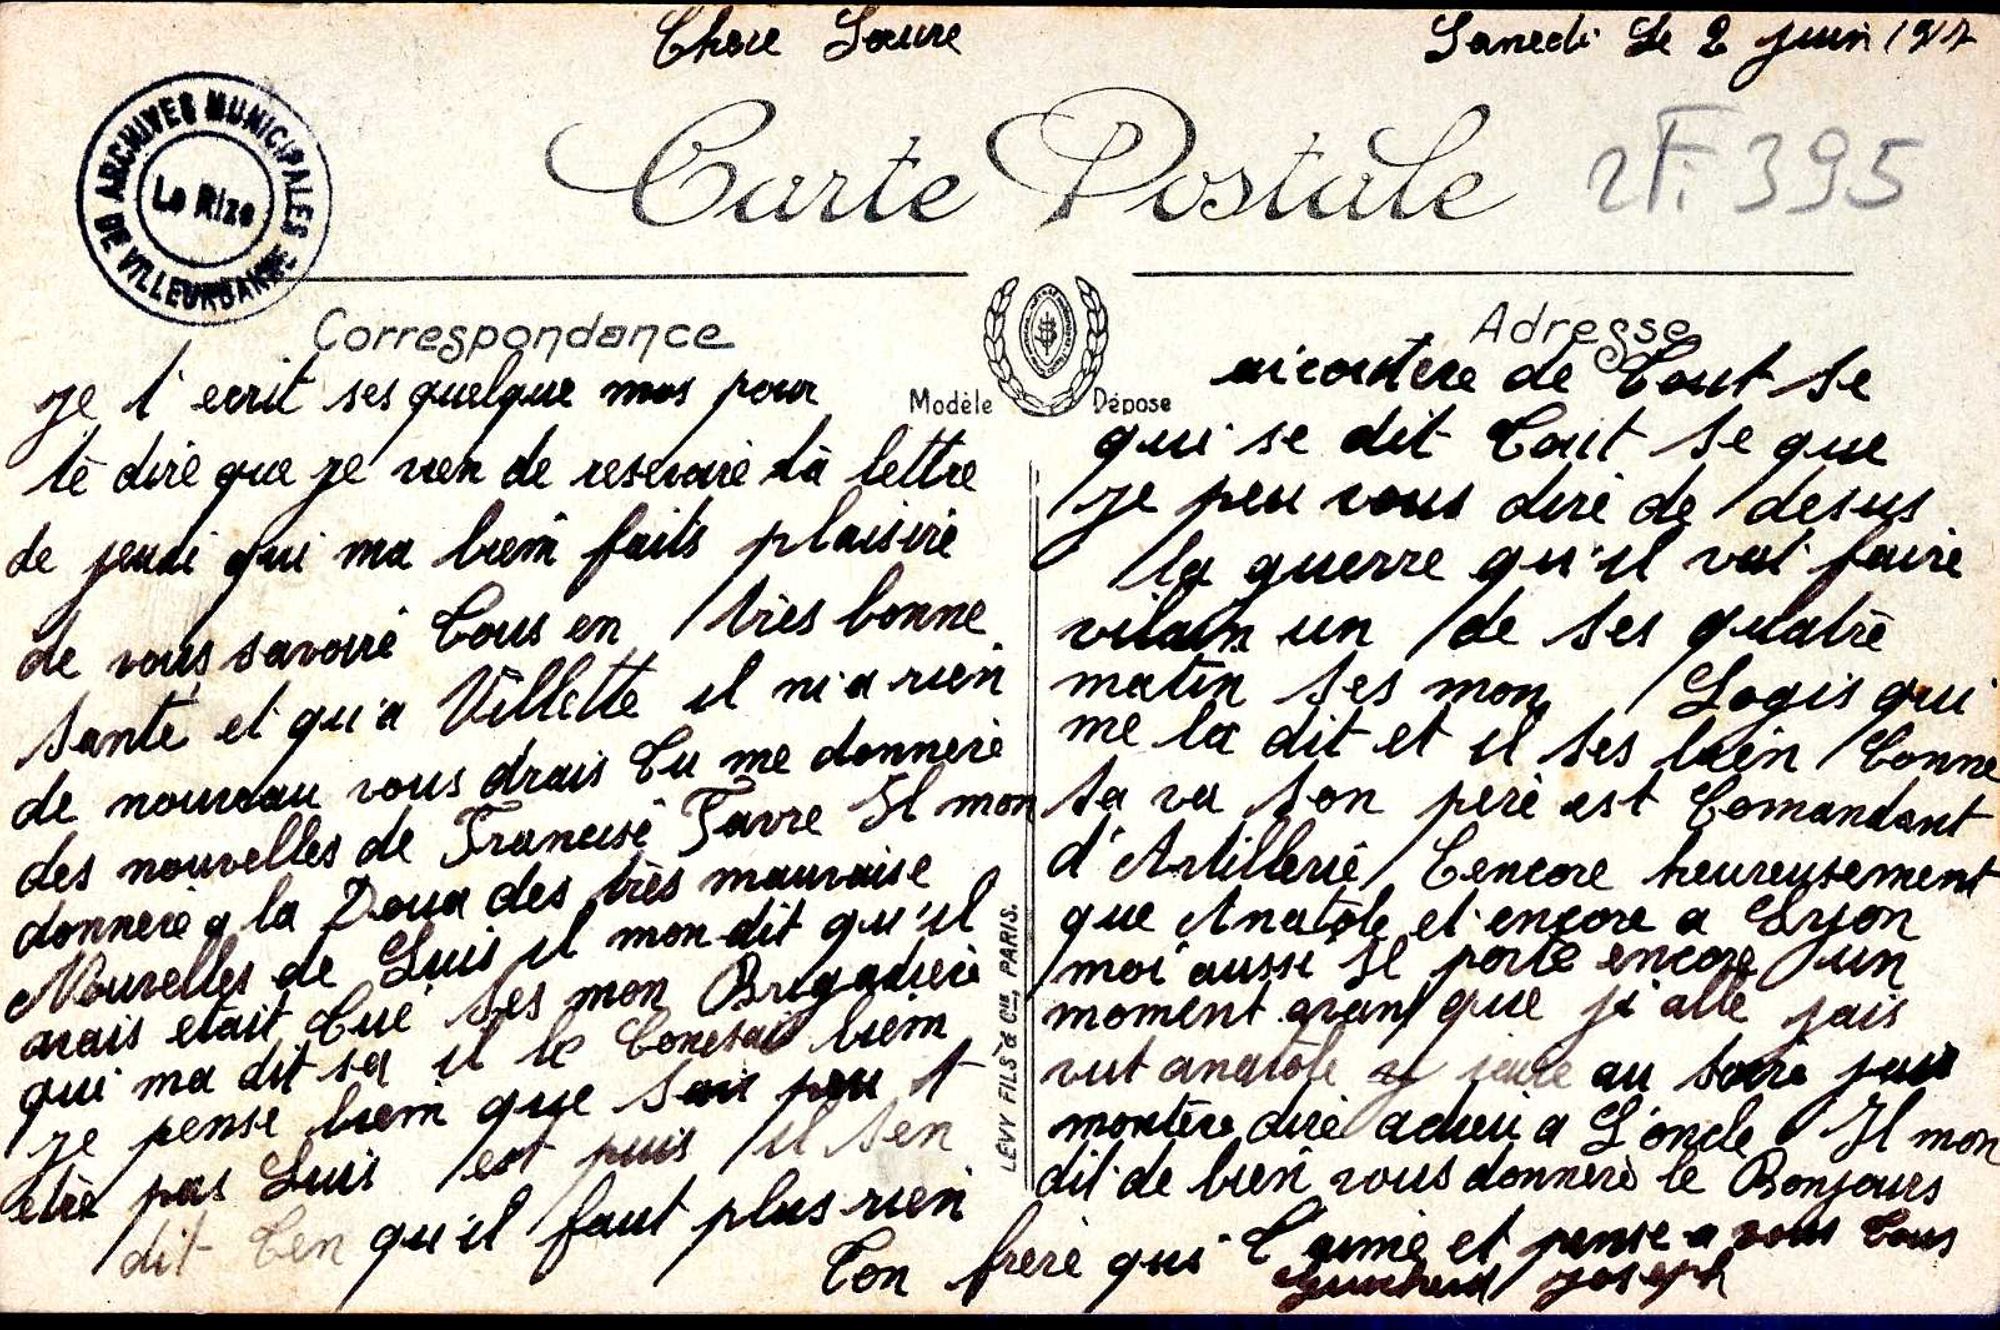 Chere Laure
Samedi Le 2 juin 1917
ARCHIVES MUNICIPALES
DE VILLEURBANNE
Le Rize
Carte Postale
2Fi 395
Correspondance
Adresse
Modèle Déposé
LEVY FILS & Cie, PARIS.
je t ecrit ses quelque mos pour
te dire que je vien de resevoire ta lettre
de jeudi qui ma biein faits plaisire
de vous savoire tous en très bonne
santé et qu'a Villette il ni a rien
de nouveau vous drais tu me donnere
des nouvelles de Francise Favre Il mon
donnere a la Doua des très mauvaise
Nouvelles de Luis il mon dit qu'il
avais etait tué ses mon Brigadiere
qui ma dit sa il le bien
je pense biein que sais peu t
etre pas Luis est puis il sen
dit ten qu'il faut plus rien
de tout se
qui se dit tout se que
je peu vous dire de desus
la guerre qu'il vat faire
vilain un de ses quatre
matin ses mon Logis qui
me la dit et il ses bien Comme
sa va son pere est Comandant
d'Artillerie encore heureusement
que Anatole et encore a Lyon
moi aussi Il porte encore un
moment avant que ji alle jais
vut anatole au soire
dire adieu a L'oncle Il mon
dit de bien vous donnere le Bonjours
Ton frere qui t'aime et pense a vous tous
Joseph